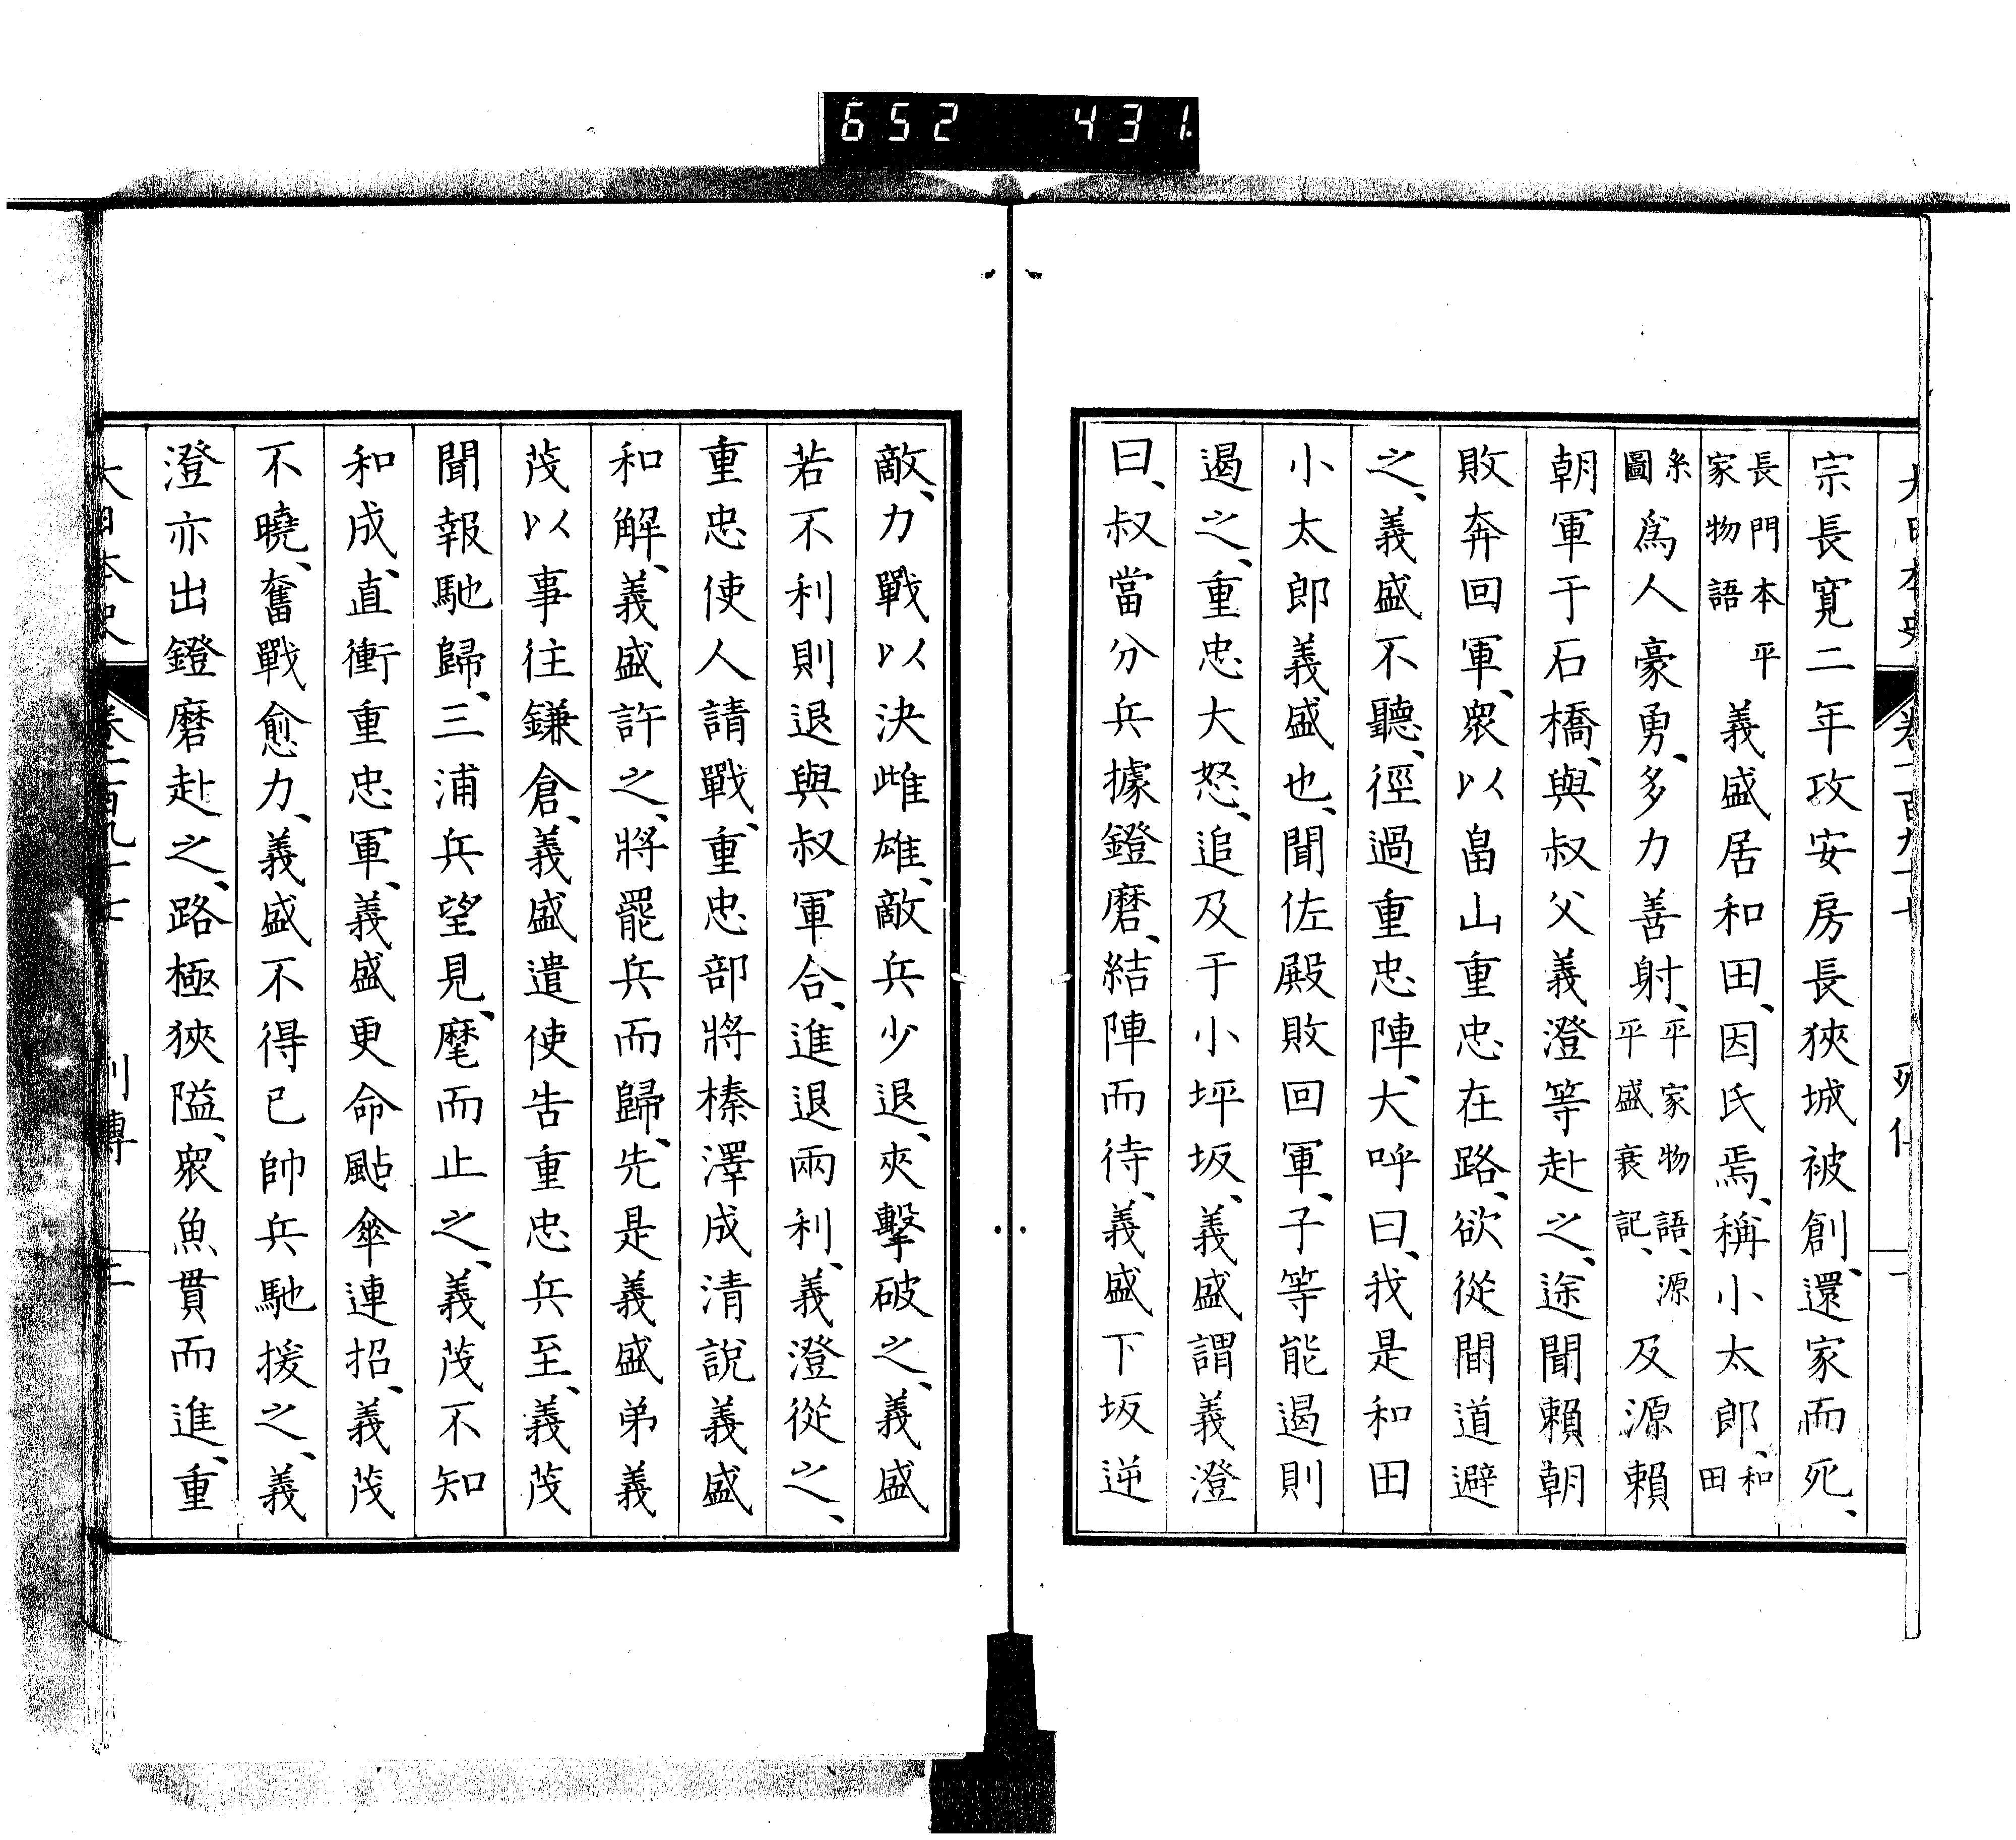 652 431
宗長寬二年攻安房長狹城被創、還家而死、
長門本平家物語 義盛居和田、因氏焉、稱小太郎、和田
系圖 爲人豪勇、多力善射、平家物語、源平盛衰記、及源賴
朝軍于石橋、與叔父義澄等赴之、途聞賴朝
敗奔回軍、衆以畠山重忠在路、欲從間道避
之、義盛不聽、徑過重忠陣、大呼曰、我是和田
小太郎義盛也、聞佐殿敗回軍、子等能遏則
遏之、重忠大怒、追及于小坪坂、義盛謂義澄
曰、叔當分兵據鐙磨、結陣而待、義盛下坂逆
敵、力戰以決雌雄、敵兵少退、夾擊破之、義盛
若不利則退與叔軍合、進退兩利、義澄從之、
重忠使人請戰、重忠部將榛澤成清說義盛
和解、義盛許之、將罷兵而歸、先是義盛弟義
茂以事往鎌倉、義盛遣使告重忠兵至、義茂
聞報馳歸、三浦兵望見、麾而止之、義茂不知
和成、直衝重忠軍、義盛更命颭傘連招、義茂
不曉、奮戰愈力、義盛不得已帥兵馳援之、義
澄亦出鐙磨赴之、路極狹隘、衆魚貫而進、重